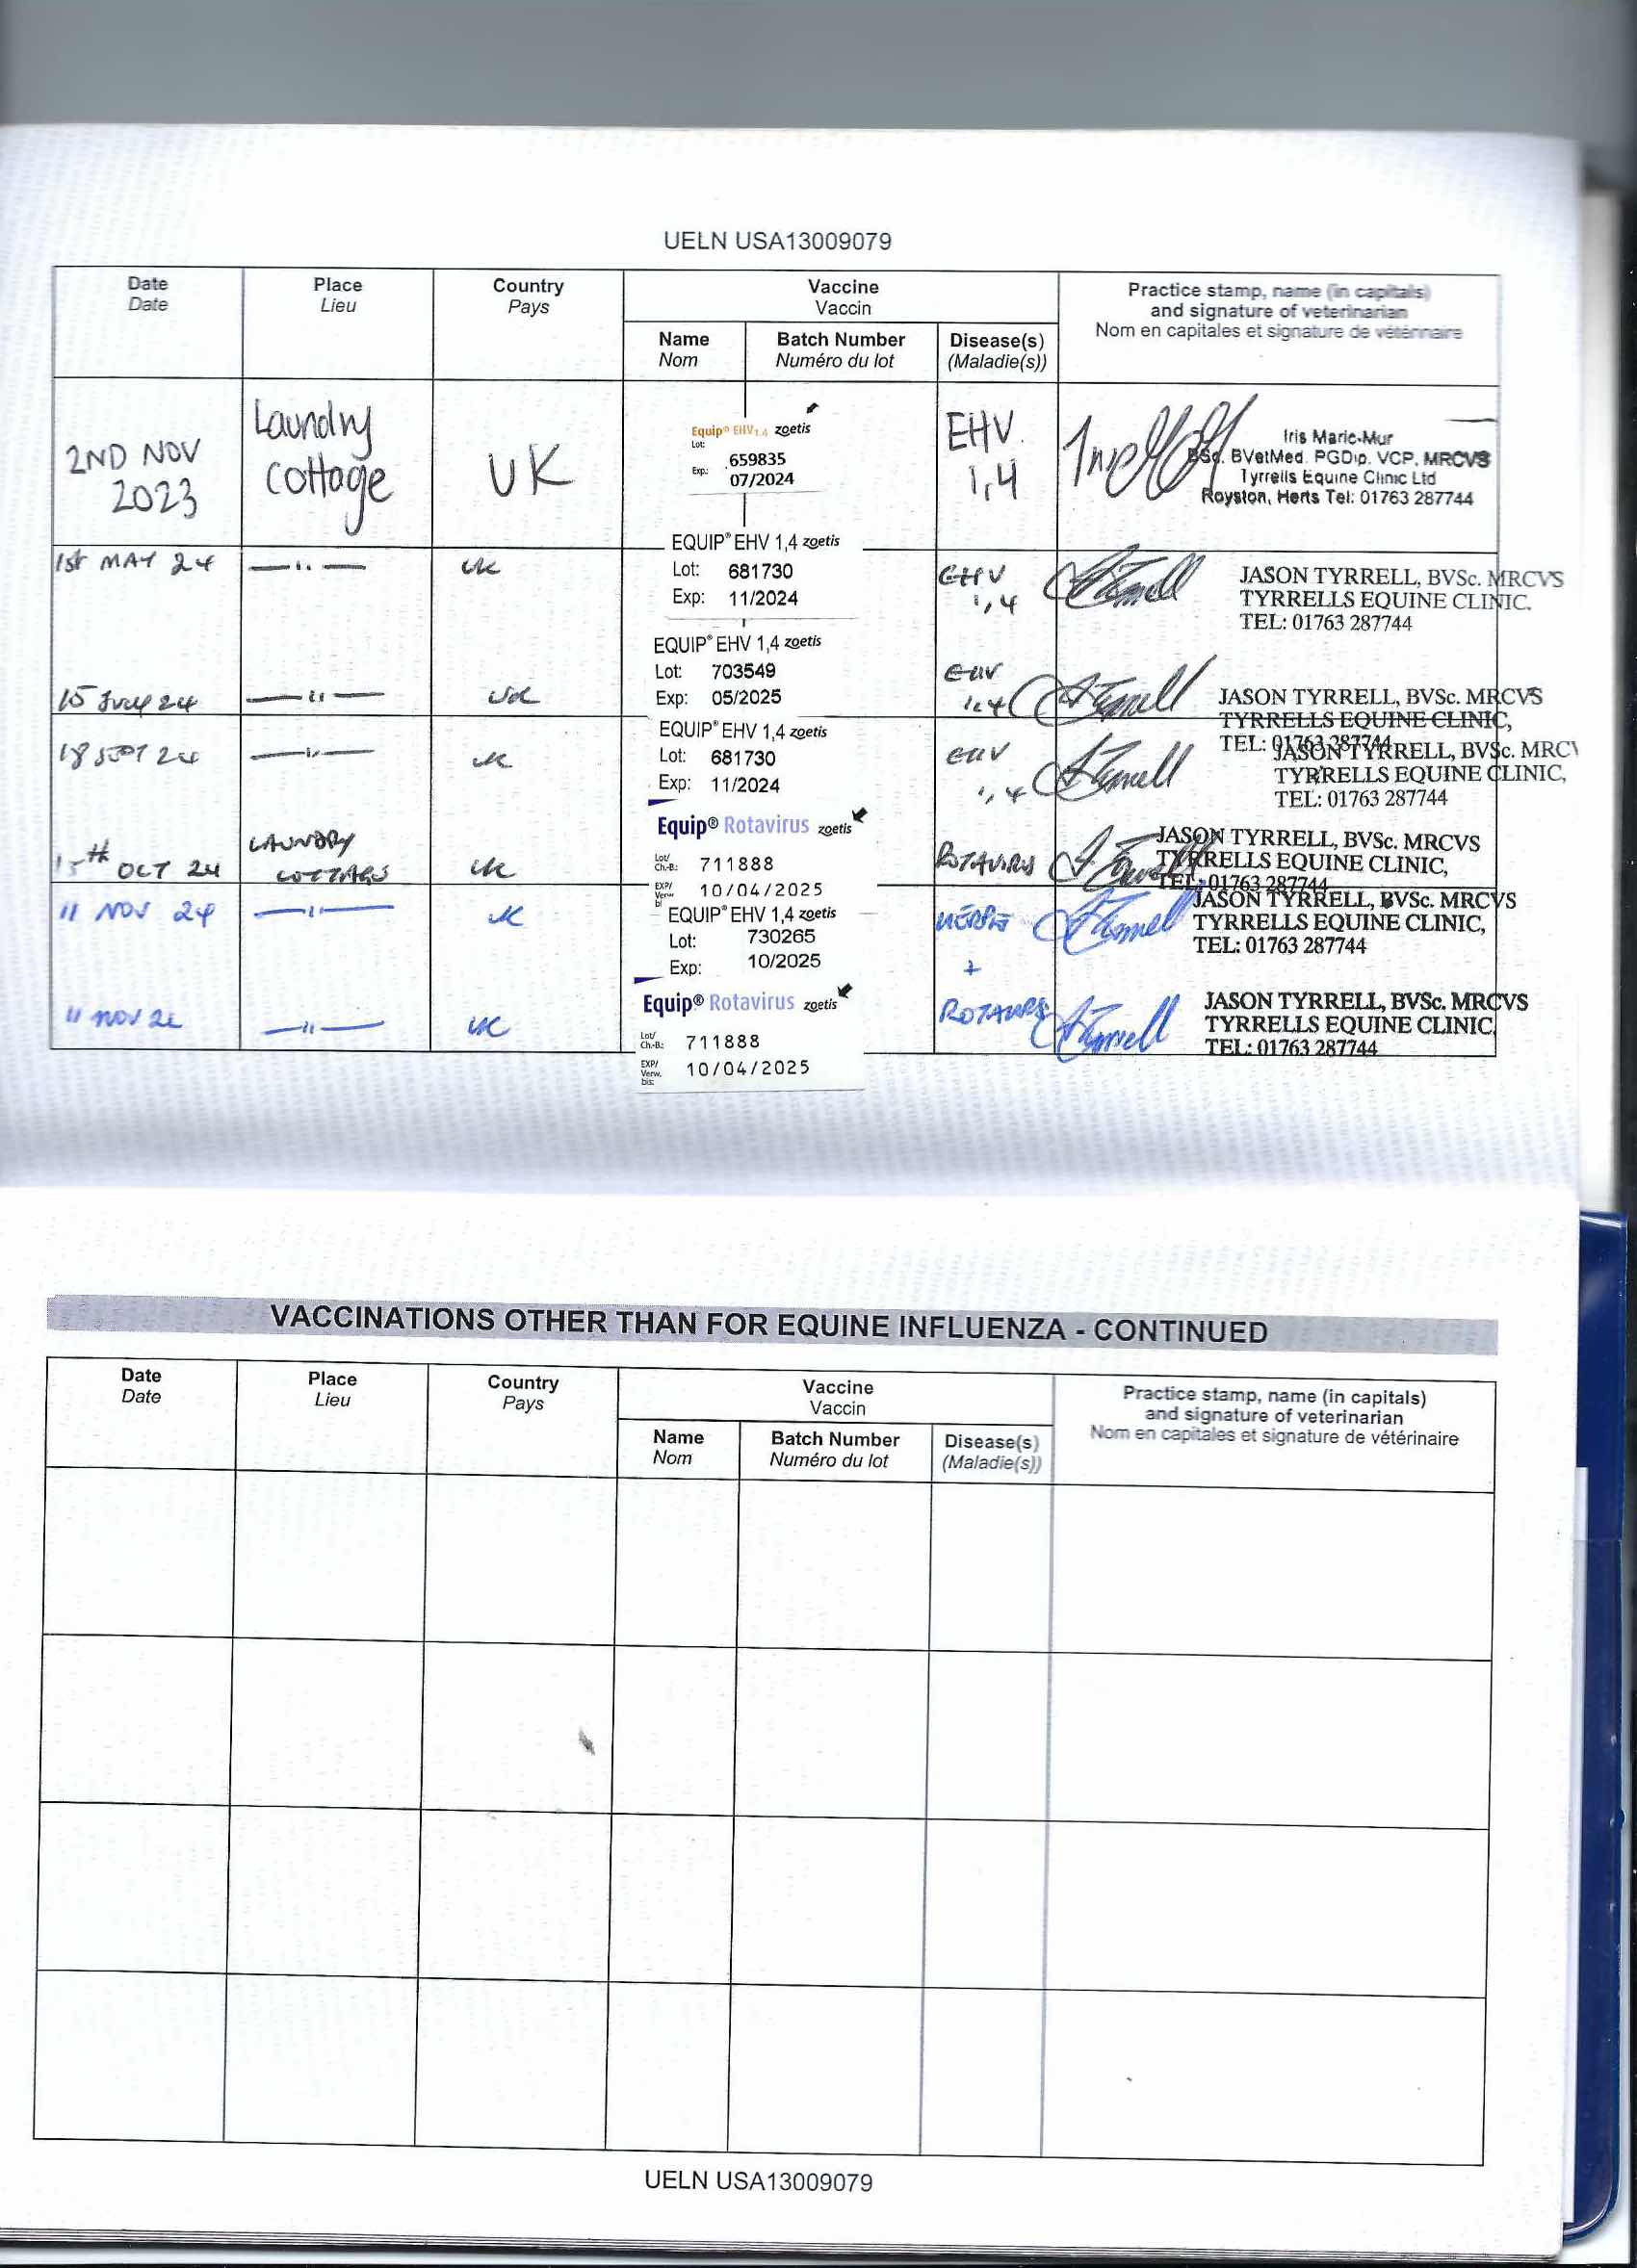 UELN USA13009079
Date Place Country Vaccine Practice stamp, name (in capitals)
Date Lieu Pays Vaccin and signature of veterinarian
Nom en capitales et signature de vétérinaire
Name Batch Number Disease(s)
Nom Numéro du lot (Maladie(s))
2ND NOV
2023
Laundry
Cottage
UK
Equip® EHV1,4 zoetis
Lot:
659835
Exp:
07/2024
EHV
1,4
Iris Maric-Mur
BSc. BVetMed. PGDip. VCP, MRCVS
Tyrrells Equine Clinic Ltd
Royston, Herts Tel: 01763 287744
1st MAY 24 —"— UK
EQUIP® EHV 1,4 zoetis
Lot: 681730
Exp: 11/2024
EHV
1,4
JASON TYRRELL, BVSc. MRCVS
TYRRELLS EQUINE CLINIC.
TEL: 01763 287744
15 July 24 —"— UK
EQUIP® EHV 1,4 zoetis
Lot: 703549
Exp: 05/2025
EHV
1,4
JASON TYRRELL, BVSc. MRCVS
TYRRELLS EQUINE CLINIC,
TEL: 01763 287744
18 SEPT 24 —"— UK
EQUIP® EHV 1,4 zoetis
Lot: 681730
Exp: 11/2024
EHV
1,4
JASON TYRRELL, BVSc. MRCV
TYRRELLS EQUINE CLINIC,
TEL: 01763 287744
OCT 24
LAUNDRY
COTTAGE
UK
Equip® Rotavirus zoetis
Lot/
Ch.-B.: 711888
EXP/
Verw. 10/04/2025
ROTAVIRUS
JASON TYRRELL, BVSc. MRCVS
TYRRELLS EQUINE CLINIC,
TEL: 01763 287744
11 NOV 24 —"— UK
EQUIP® EHV 1,4 zoetis
Lot: 730265
Exp: 10/2025
+
JASON TYRRELL, BVSc. MRCVS
TYRRELLS EQUINE CLINIC,
TEL: 01763 287744
11 NOV 24 —"— UK
Equip® Rotavirus zoetis
Lot/
Ch.-B.: 711888
EXP/
Verw. 10/04/2025
bis:
JASON TYRRELL, BVSc. MRCVS
TYRRELLS EQUINE CLINIC,
TEL: 01763 287744
VACCINATIONS OTHER THAN FOR EQUINE INFLUENZA - CONTINUED
Date Place Country Vaccine Practice stamp, name (in capitals)
Date Lieu Pays Vaccin and signature of veterinarian
Nom en capitales et signature de vétérinaire
Name Batch Number Disease(s)
Nom Numéro du lot (Maladie(s))
UELN USA13009079